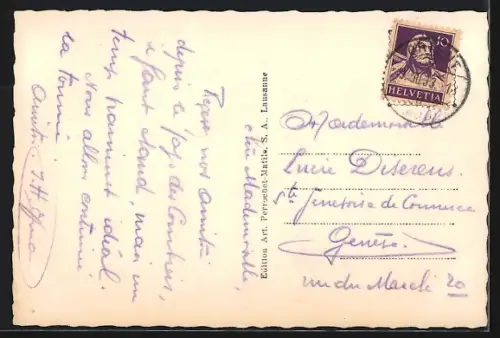 Chère Mademoiselle,
Reçu nos amitiés
depuis le pays des Combiers,
il faut chaud, mais un
temps vraiment idéal.
Nous allons continuer
la tournée
Amitiés
Edition Art. Perrochet-Matile, S. A., Lausanne
10
HELVETIA
Mademoiselle
Lucie Diserens
Sté Genevoise de Commerce
Genève.
rue du Marché 20